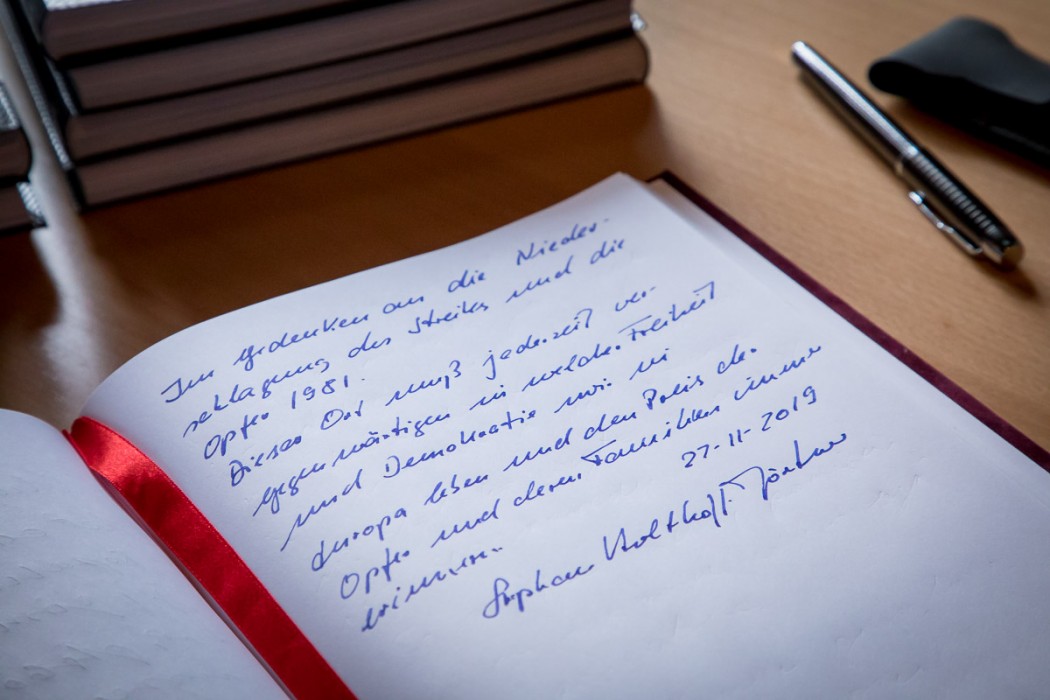 Im Gedenken an die Nieder-
schlagung des Streiks und die
Opfer 1981.
Dieser Ort muß jederzeit ver-
gegenwärtigen in welcher Freiheit
und Demokratie wir in
Europa leben und den Preis der
Opfer und deren Familien immer
erinnern.
27-11-2019
Stephan Holthoff-Pförtner